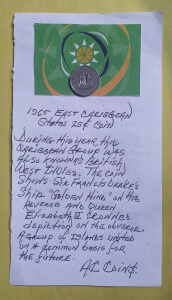 1965 EAST CARIBBEAN
States 25¢ COIN
DURING this YEAR this
CARIBBEAN GROUP WAS
Also KNOWN AS British
WEST INDIES. THE COIN
Shows Sir FRANCIS DRAKE'S
Ship "GOLDEN HIND" ON the
REVERSE AND QUEEN
ELIZABETH II CROWNED
depiction on the obverse
A GROUP OF ISLANDS UNITED
ON A COMMON BASIS FOR
the FUTURE.
AC COINS